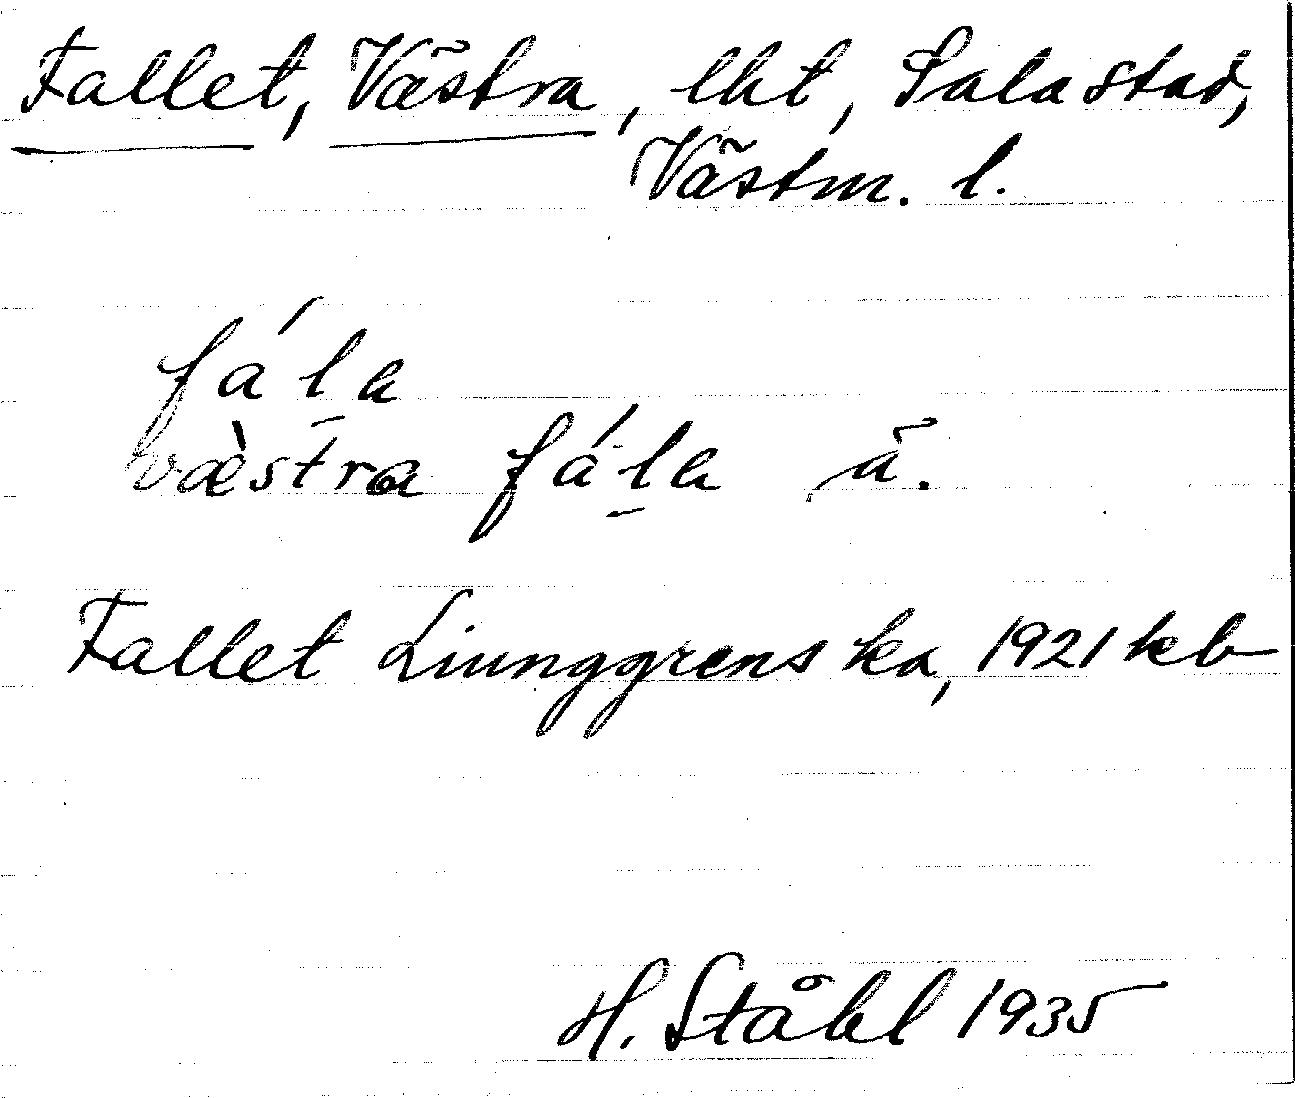 Fallet, Västra, lht, Sala stad,
Västm. l.
fála
væ̀stra fála ä.
Fallet Liunggrenska, 1921 kb
H. Ståhl 1935